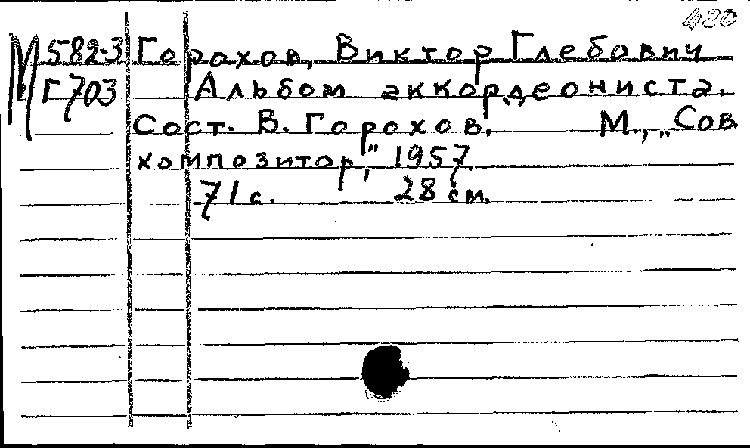 420
М 582-3 Горохов, Виктор Глебович
Г703 Альбом аккордеониста.
Сост. В. Горохов. М., „Сов
композитор," 1957.
71 с. 28 см.